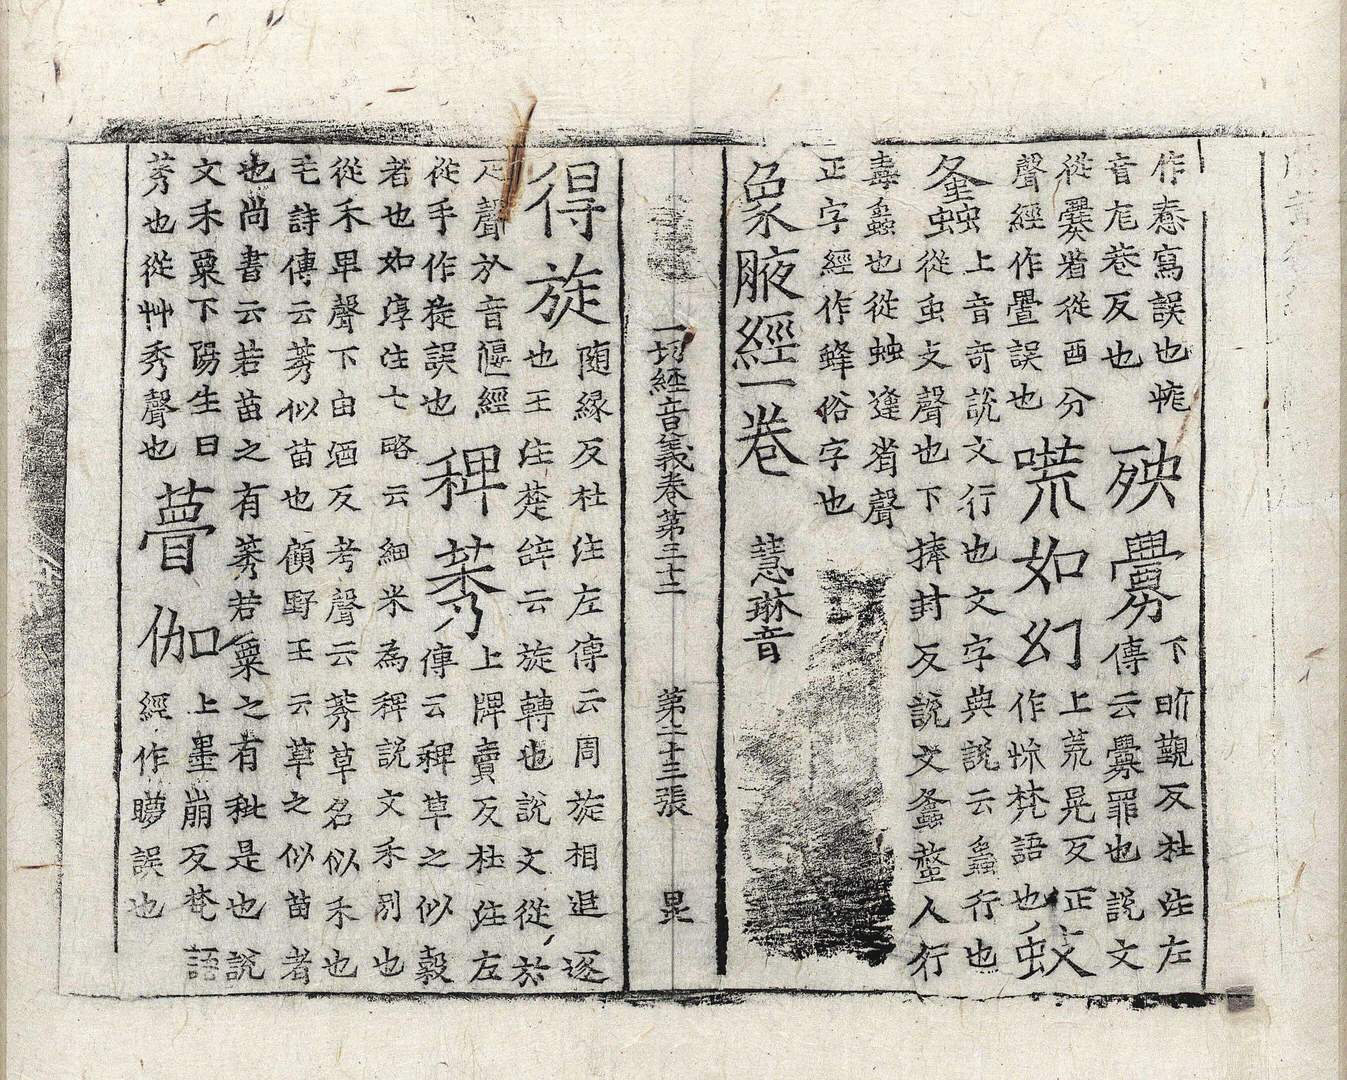 作㤅寫誤也㡆
音㡆巷反也
殃釁下昕覲反杜注左
傳云釁罪也說文
從爨省從酉分
聲經作舋誤也
𧧢如幻上荒晃反正
作怳梵語也
蚊
螽上音奇說文行也文字典說云蟲行也
從虫支聲也下捧封反說文螽螫人行
毒蟲也從䖵逢省聲
正字經作蜂俗字也
象腋經一卷 慧琳音
一切經音義卷第三十二 第二十三張 昆
得旋隨緣反杜注左傳云周旋相追逐
也王注楚辞云旋轉也說文從㫃
疋聲㫃音偃經
從手作㨨誤也
稗莠上牌賣反杜注左
傳云稗草之似穀
者也如淳注七略云細米為稗說文禾別也
從禾卑聲下由酒反考聲云莠草名似禾也
毛詩傳云莠似苗也顧野王云草之似苗者
也尚書云若苗之有莠若粟之有秕是也說
文禾粟下陽生曰
莠也從艸秀聲也
瞢伽上墨崩反梵語
經作矇誤也